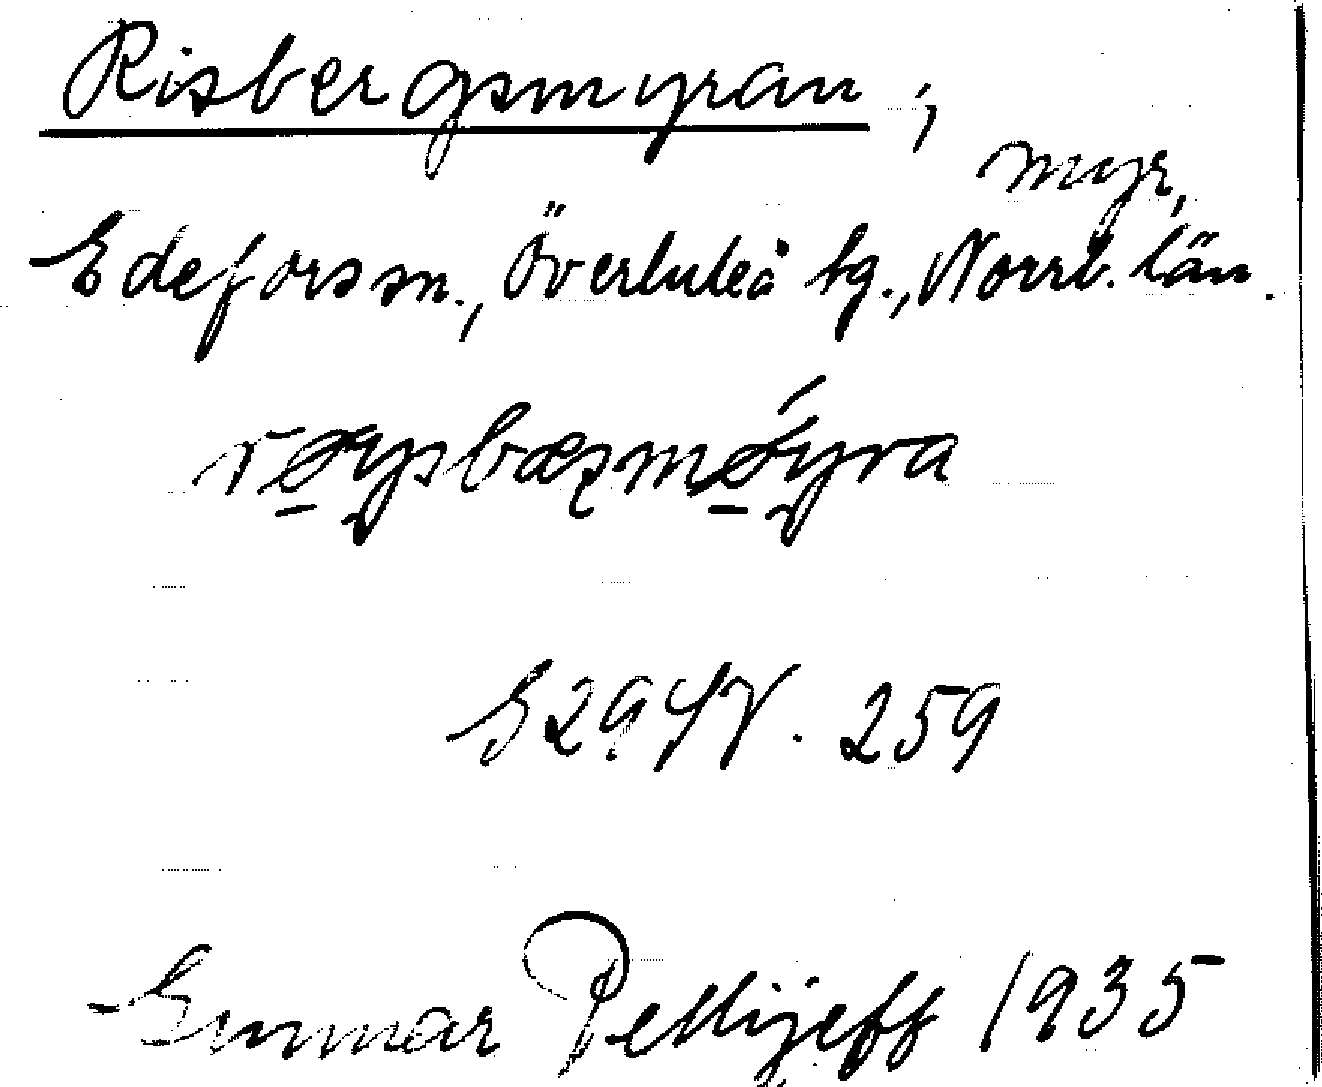 Risbergsmyran,
myr,
Edefors sn., Överluleå tg., Norrb. län.
G294V. 259
Gunnar Pellijeff 1935